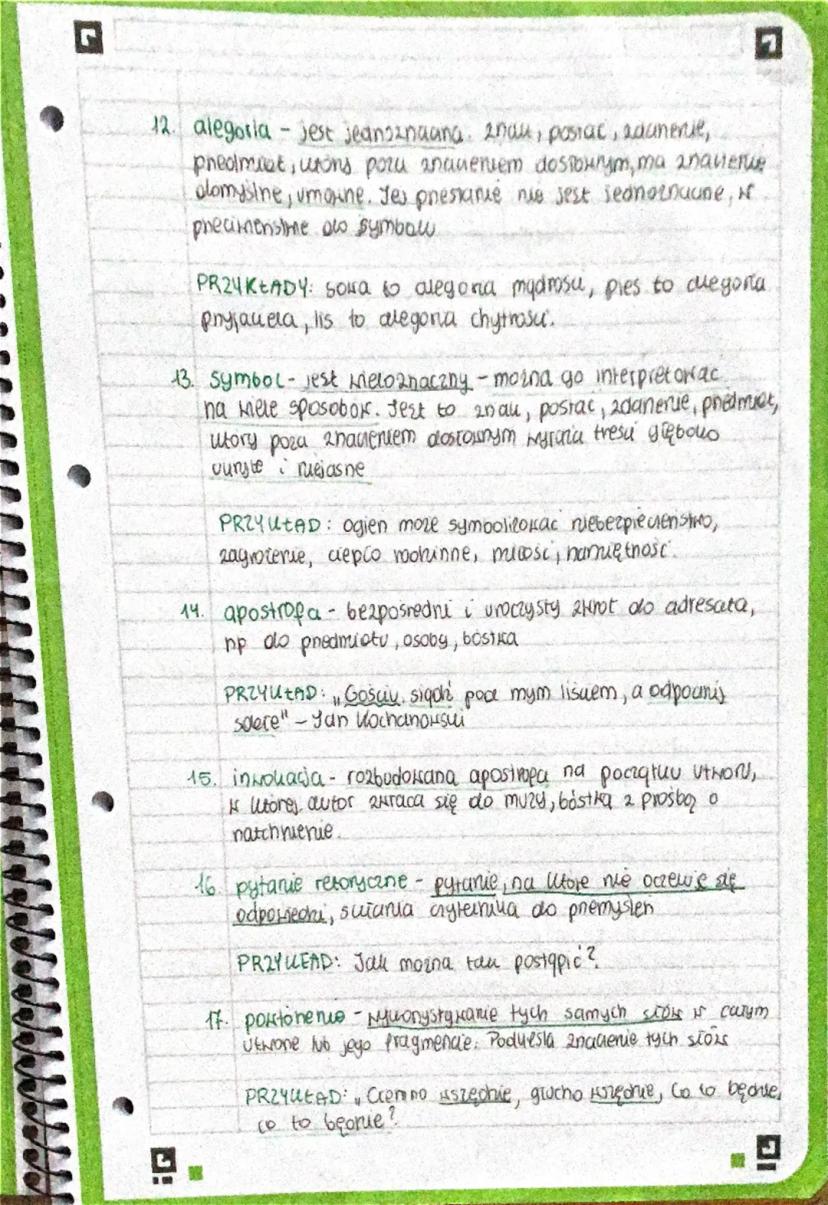 12. alegoria - jest jednoznaczna. znak, postać, zdarzenie,
przedmiot, który poza znaczeniem dosłownym, ma znaczenie
domyślne, umowne. Jej przesłanie nie jest jednoznaczne, w
przeciwieństwie do symbolu
PRZYKŁADY: sowa to alegoria mądrości, pies to alegoria
przyjaciela, lis to alegoria chytrości.
13. symbol - jest wieloznaczny - można go interpretować
na wiele sposobów. Jest to znak, postać, zdarzenie, przedmiot,
który poza znaczeniem dosłownym wyraża treści głęboko
ukryte i niejasne
PRZYKŁAD: ogień może symbolizować niebezpieczeństwo,
zagrożenie, ciepło rodzinne, miłość, namiętność.
14. apostrofa - bezpośredni i uroczysty zwrot do adresata,
np do przedmiotu, osoby, bóstwa
PRZYKŁAD: "Gościu, siądź pod mym liściem, a odpocznij
sobie" - Jan Kochanowski
15. inwokacja - rozbudowana apostrofa na początku utworu,
w której autor zwraca się do muzy, bóstwa z prośbą o
natchnienie.
16. pytanie retoryczne - pytanie, na które nie oczekuje się
odpowiedzi, skłania czytelnika do przemyśleń
PRZYKŁAD: Jak można tak postąpić?
17. powtórzenie - wykorzystywanie tych samych słów w całym
utworze lub jego fragmencie. Podkreśla znaczenie tych słów
PRZYKŁAD: "Ciemno wszędzie, głucho wszędzie, Co to będzie,
co to będzie?